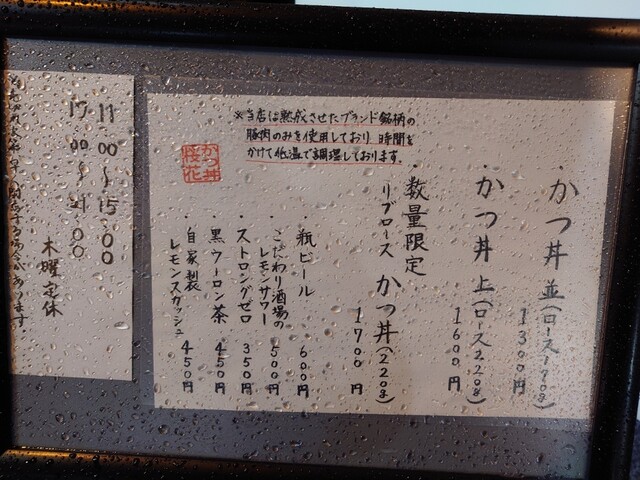 ※当店は熟成させたブランド銘柄の
豚肉のみを使用しており 時間を
かけて低温で調理しております。
かつ丼
桜花
・かつ丼 並(ロース170g)
1300円
・かつ丼 上(ロース220g)
1600円
・数量限定
リブロース かつ丼(220g)
1700円
・瓶ビール 600円
・こだわり酒場の
レモンサワー 500円
・ストロングゼロ 350円
・黒ウーロン茶 450円
・自家製
レモンスカッシュ 450円
11:00～15:00
17:00～21:00
木曜定休
早く閉店する場合があります